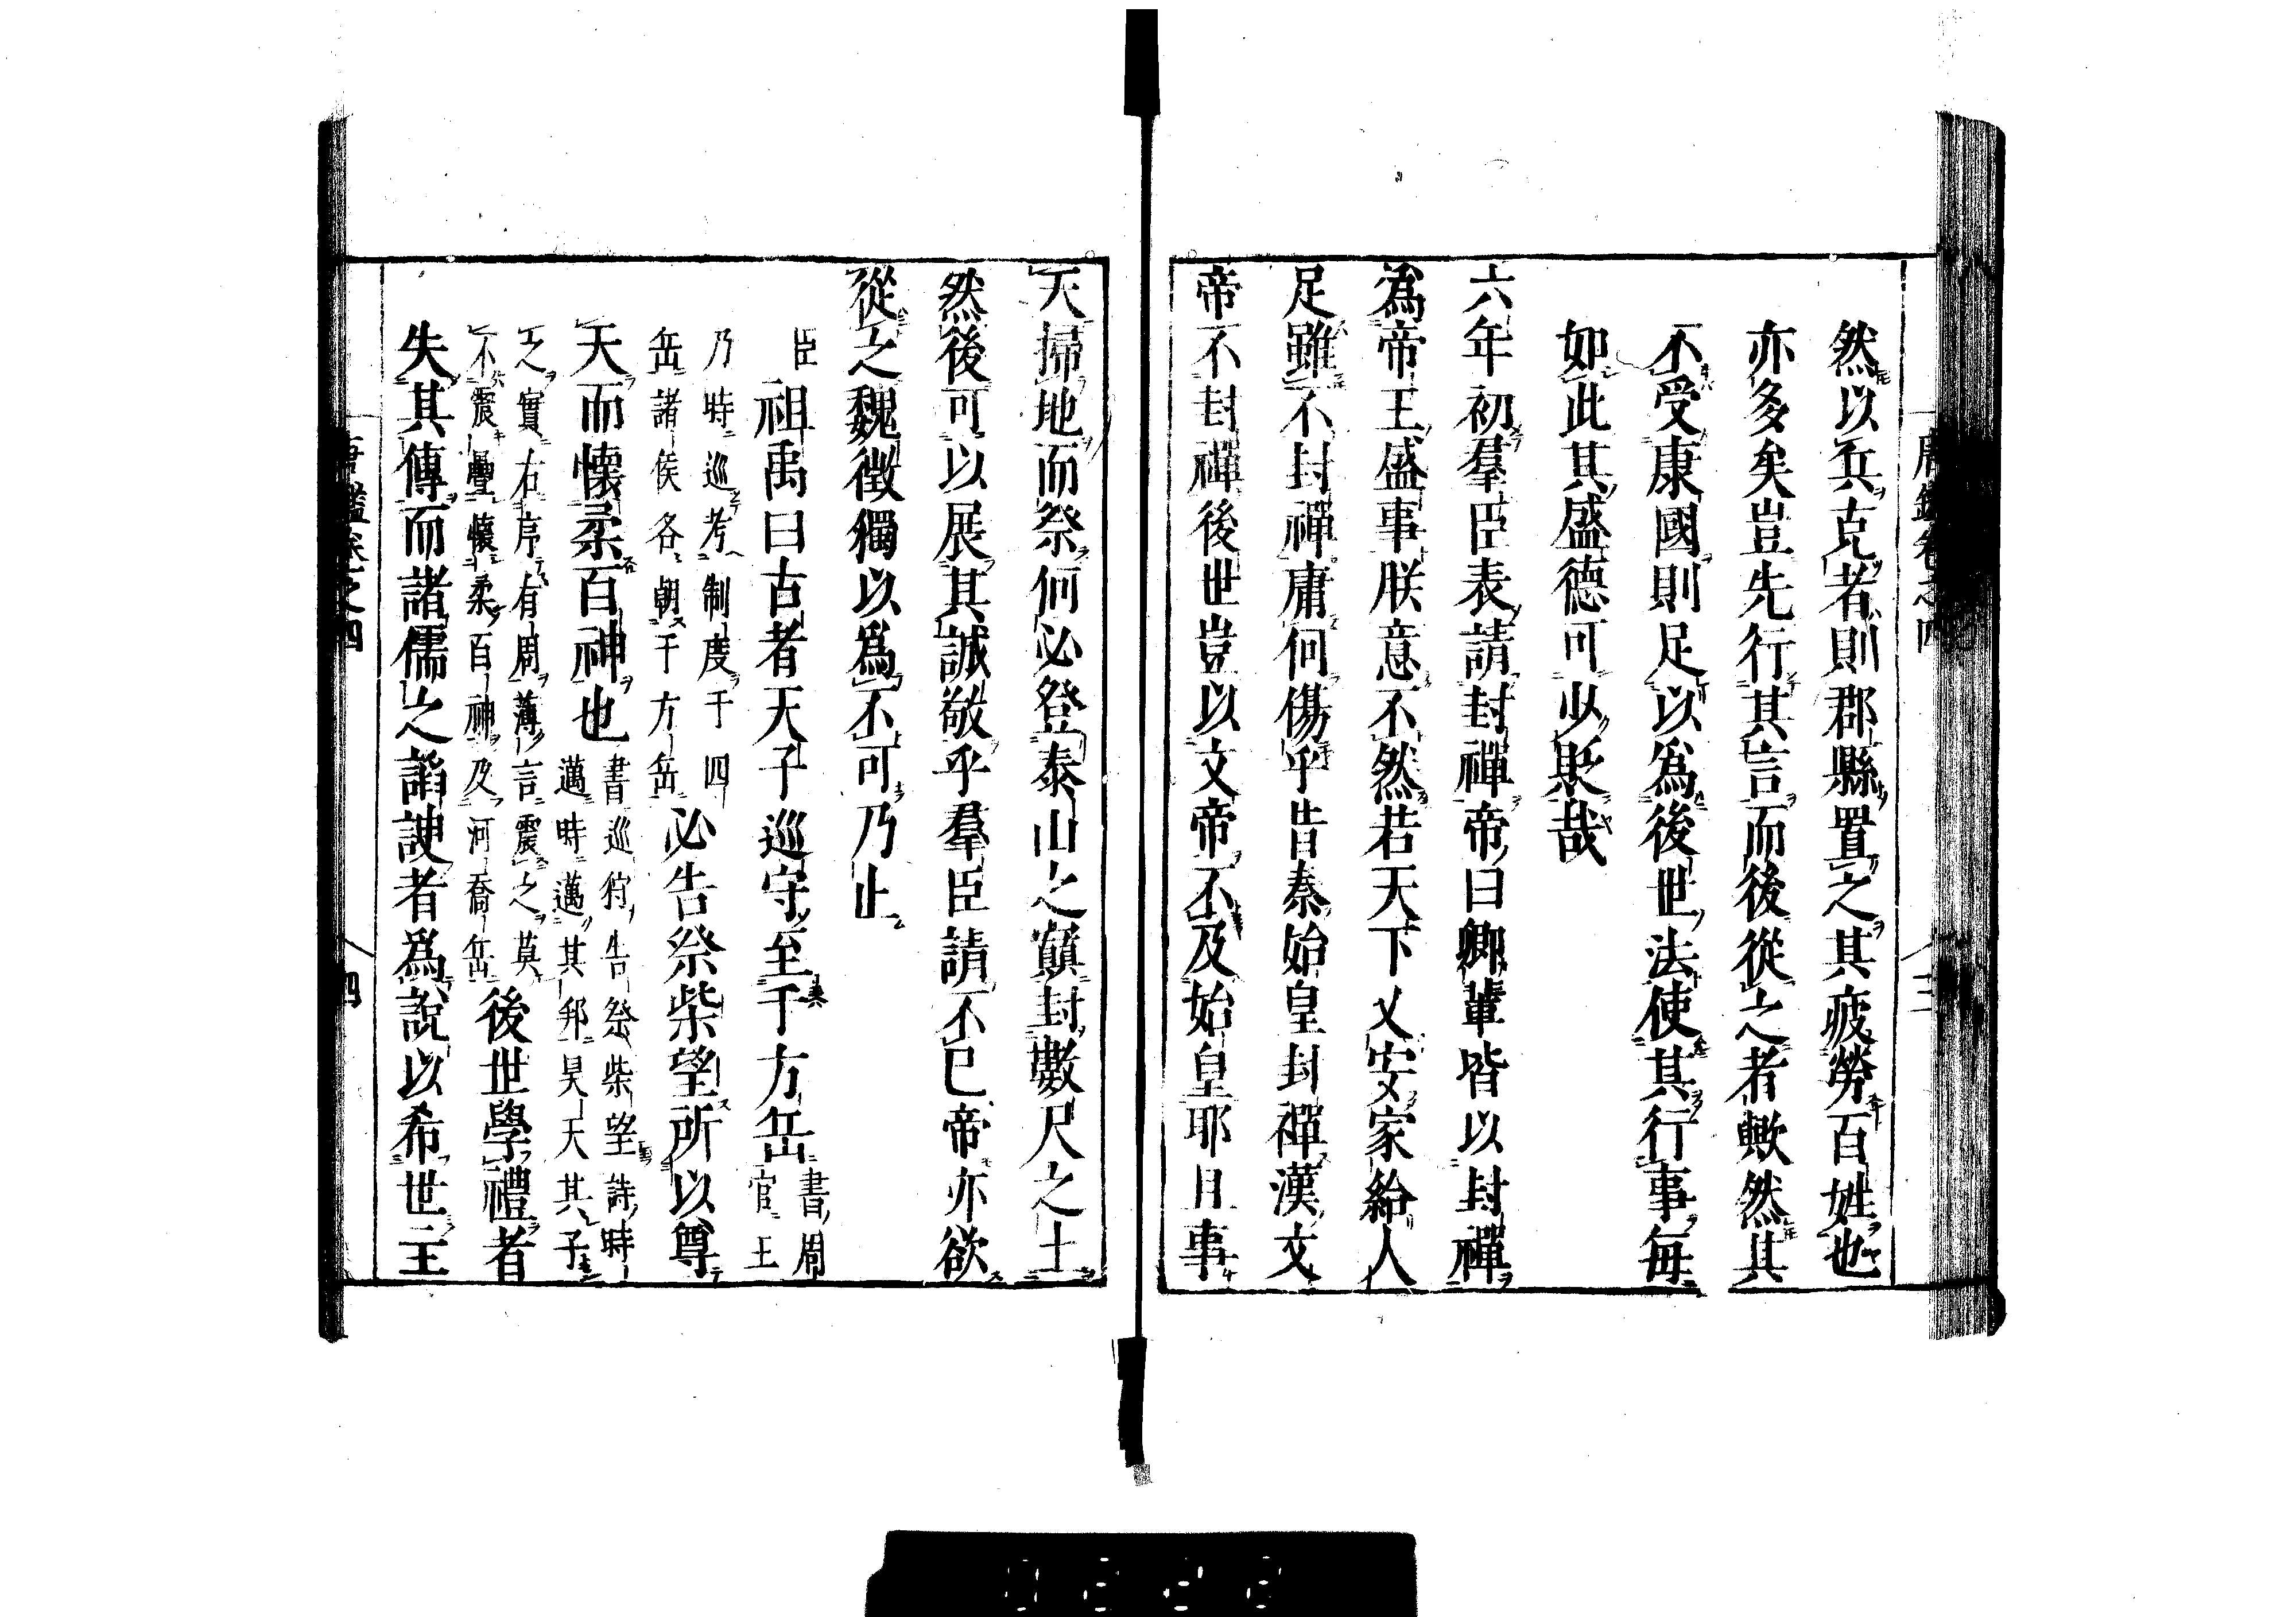 唐鑑卷之四
三
然以兵克者則郡縣置之其疲勞百姓也
亦多矣豈先行其言而後從之者歟然其
不受康國則足以爲後世法使其行事每
如此其盛德可少貶哉
六年初羣臣表請封禪帝曰卿輩皆以封禪
爲帝王盛事朕意不然若天下乂安家給人
足雖不封禪庸何傷乎昔秦始皇封禪漢文
帝不封禪後世豈以文帝不及始皇耶且事
天掃地而祭何必登泰山之巔封數尺之土
然後可以展其誠敬乎羣臣請不已帝亦欲
從之魏徵獨以爲不可乃止
臣祖禹曰古者天子巡守至于方岳書周
官王
乃時巡考制度于四
岳諸侯各朝于方岳必告祭柴望所以尊
天而懷柔百神也書巡狩告祭柴望詩時
邁時邁其邦昊天其子
之實右序有周薄言震之莫
不震疊懷柔百神及河喬岳後世學禮者
失其傳而諸儒之諂諛者爲說以希世主
唐鑑卷之四
四